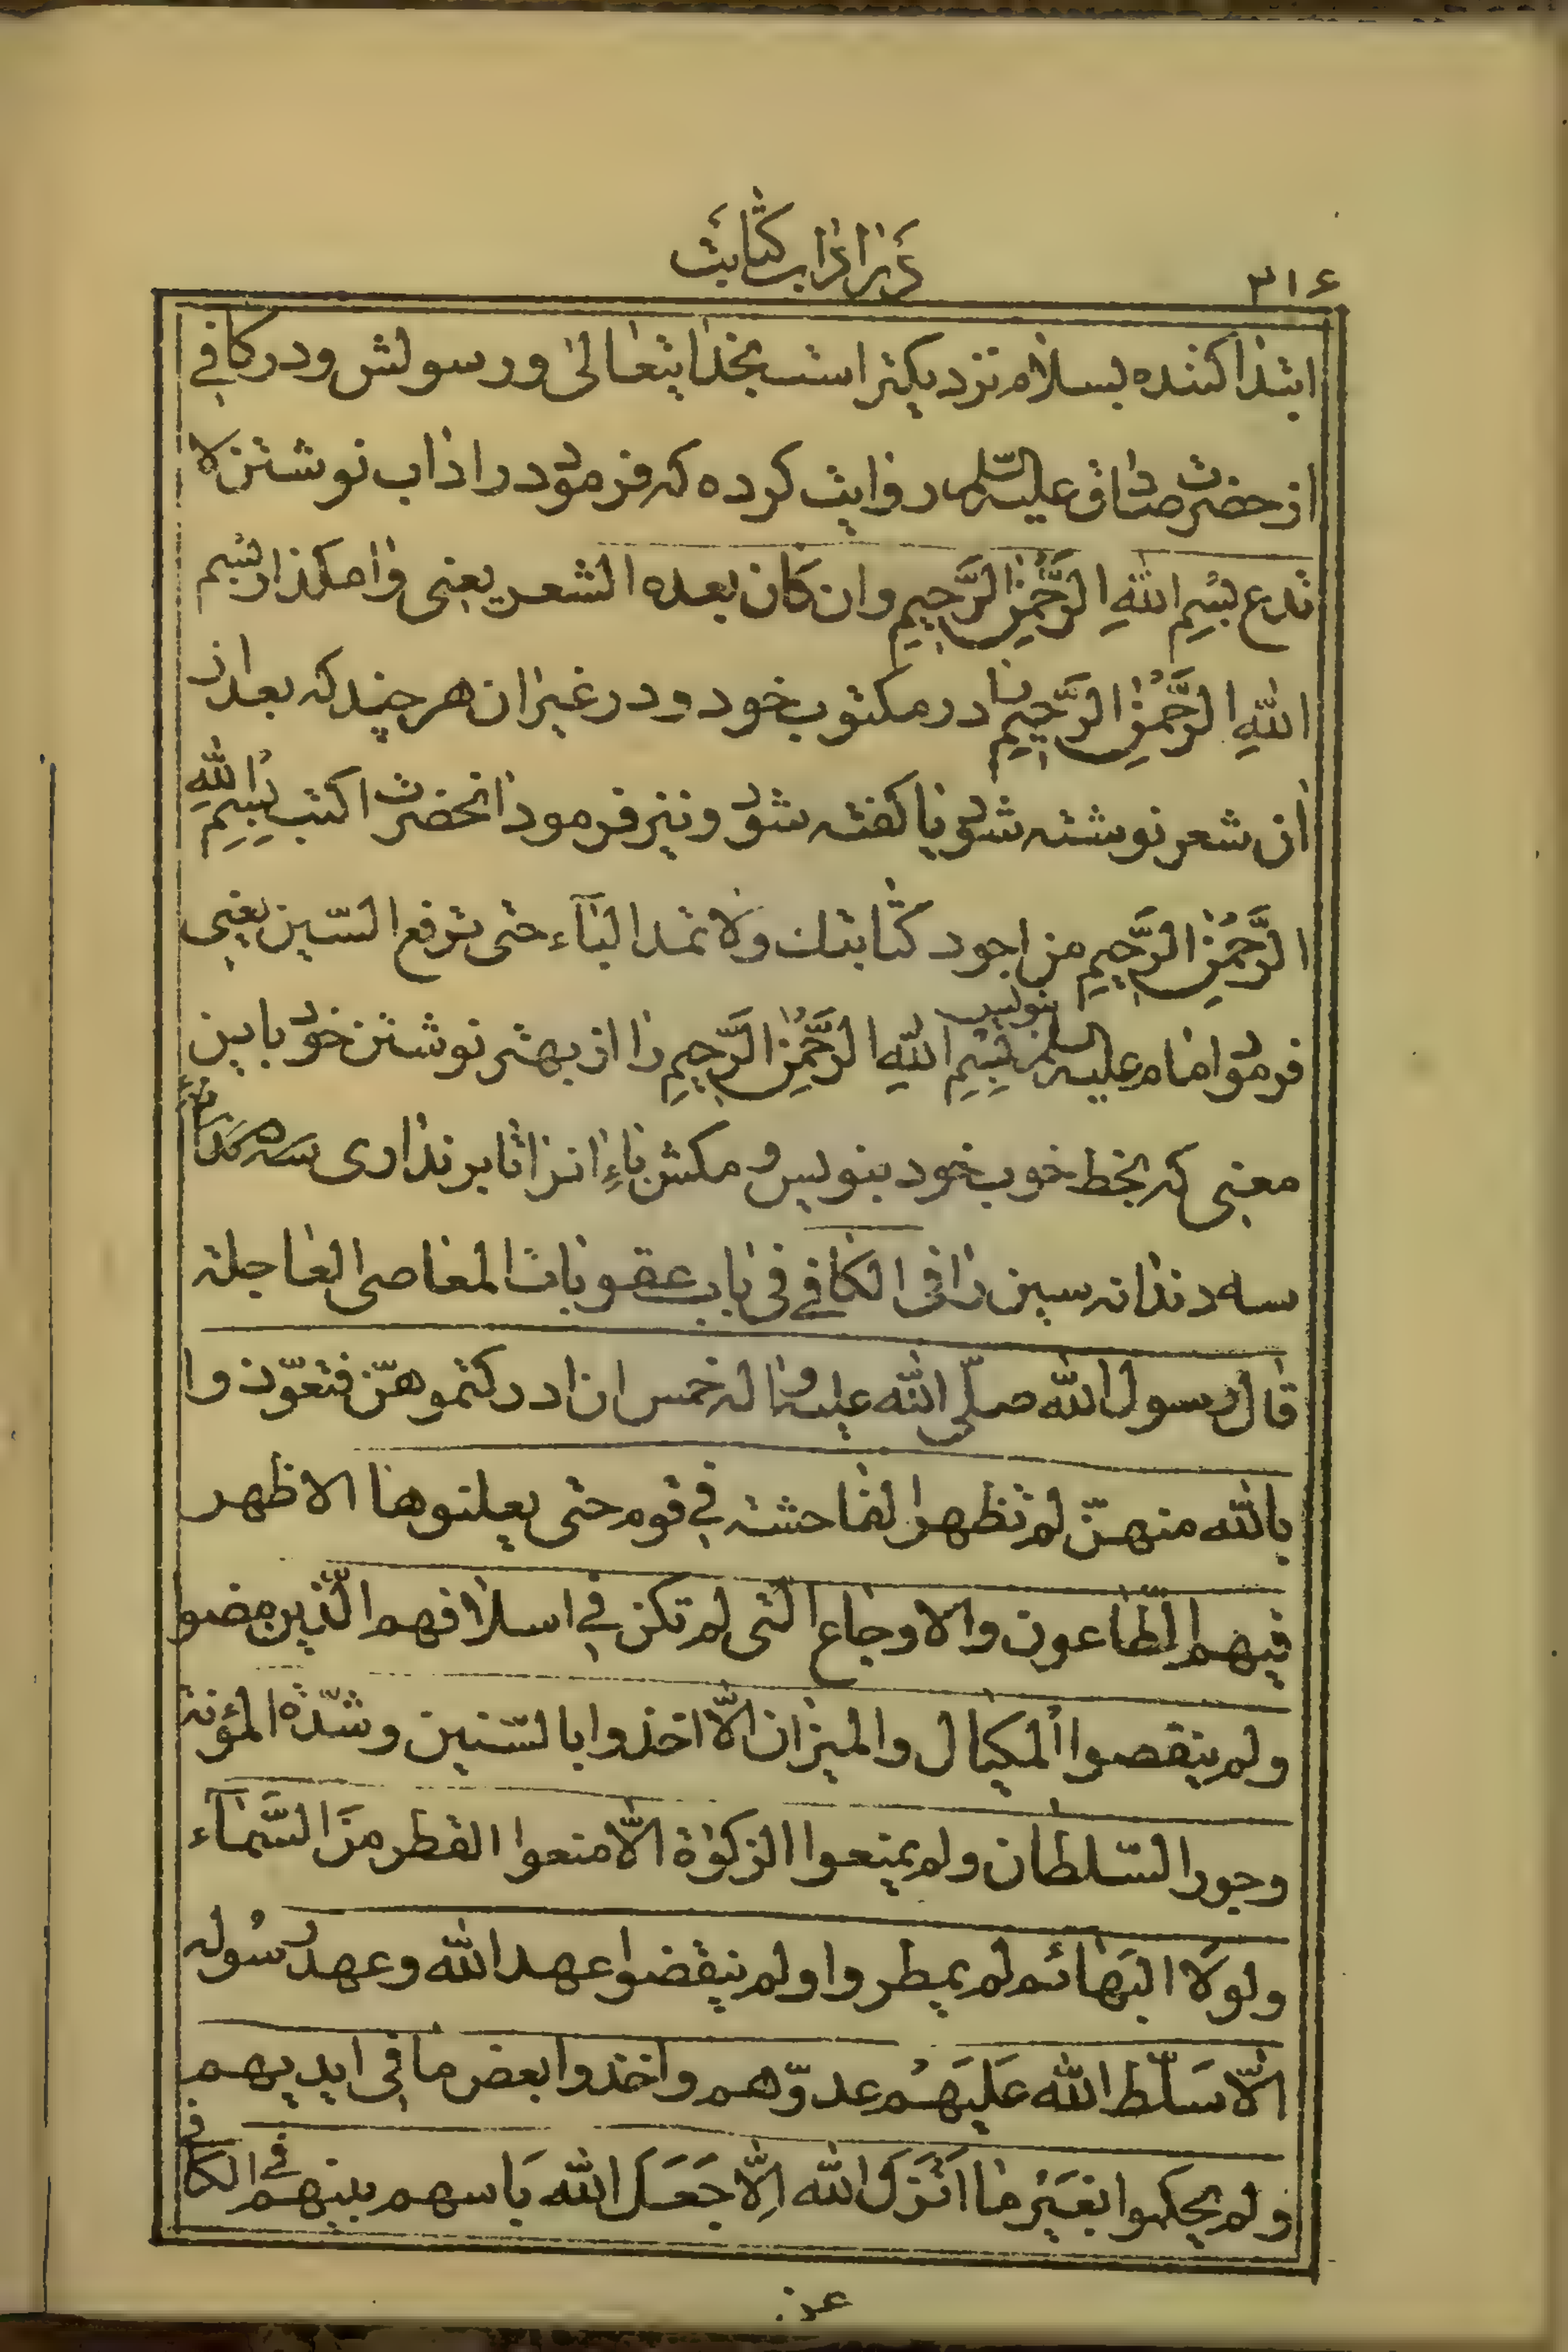 در اداب کتابت
٣١۶
ابتدا کننده بسلام نزدیکتر است بخدایتعالی و رسولش و در کافی
از حضرت صادق علیه السلام روایت کرده که فرمود در اداب نوشتن لا
تدع بِسْمِ اللّٰهِ الرَّحْمٰنِ الرَّحِیمِ وان کَان بعده الشعر یعنی وامکذار بسم
اللّٰهِ الرَّحْمٰنِ الرَّحِیمِ را در مکتوب خود و در غیر ان هر چند که بعد از
ان شعر نوشته شود یا کفته شود و نیز فرمود انحضرت اکتب بِسْمِ اللّٰهِ
الرَّحْمٰنِ الرَّحِیمِ من اجود کتابتك ولا تمد البآء حتی ترفع السّین یعنی
فرمود امام علیه السلم بنویس بِسْمِ اللّٰهِ الرَّحْمٰنِ الرَّحِیمِ را از بهتر نوشتن خود باین
معنی که بخط خوب خود بنویس و مکش باءِ انرا تا بر نداری
سه دندانه سین را فی الکافی فی باب عقوبات المعاصی العاجلة
قال رسول اللّٰه صلّی اللّٰه علیه واله خمس ان ادرکتموهنّ فتعوّذوا
باللّٰه منهنّ لم تظهر الفاحشة فی قوم حتی یعلنوها الا ظهر
فیهم الطّاعون والاوجاع الّتی لم تکن فی اسلافهم الّذین مضو
ولم ینقصوا المکیال والمیزان الّا اخذوا بالسّنین وشدّة المؤنة
وجور السّلطان ولم یمنعوا الزکوٰة الّا منعوا القطر مِنَ السَّمَآء
ولولا البَهائم لم یمطروا ولم ینقضوا عهد اللّٰه وعهد رسُوله
الّا سَلّط اللّٰه عَلَیهُم عدوّهم واخذوا بعض ما فی ایدیهم
ولم یحکموا بغَیْر ما اَنْزَلَ اللّٰه اِلّا جَعَلَ اللّٰه بَاسهم بینهم فی الکافی
عن